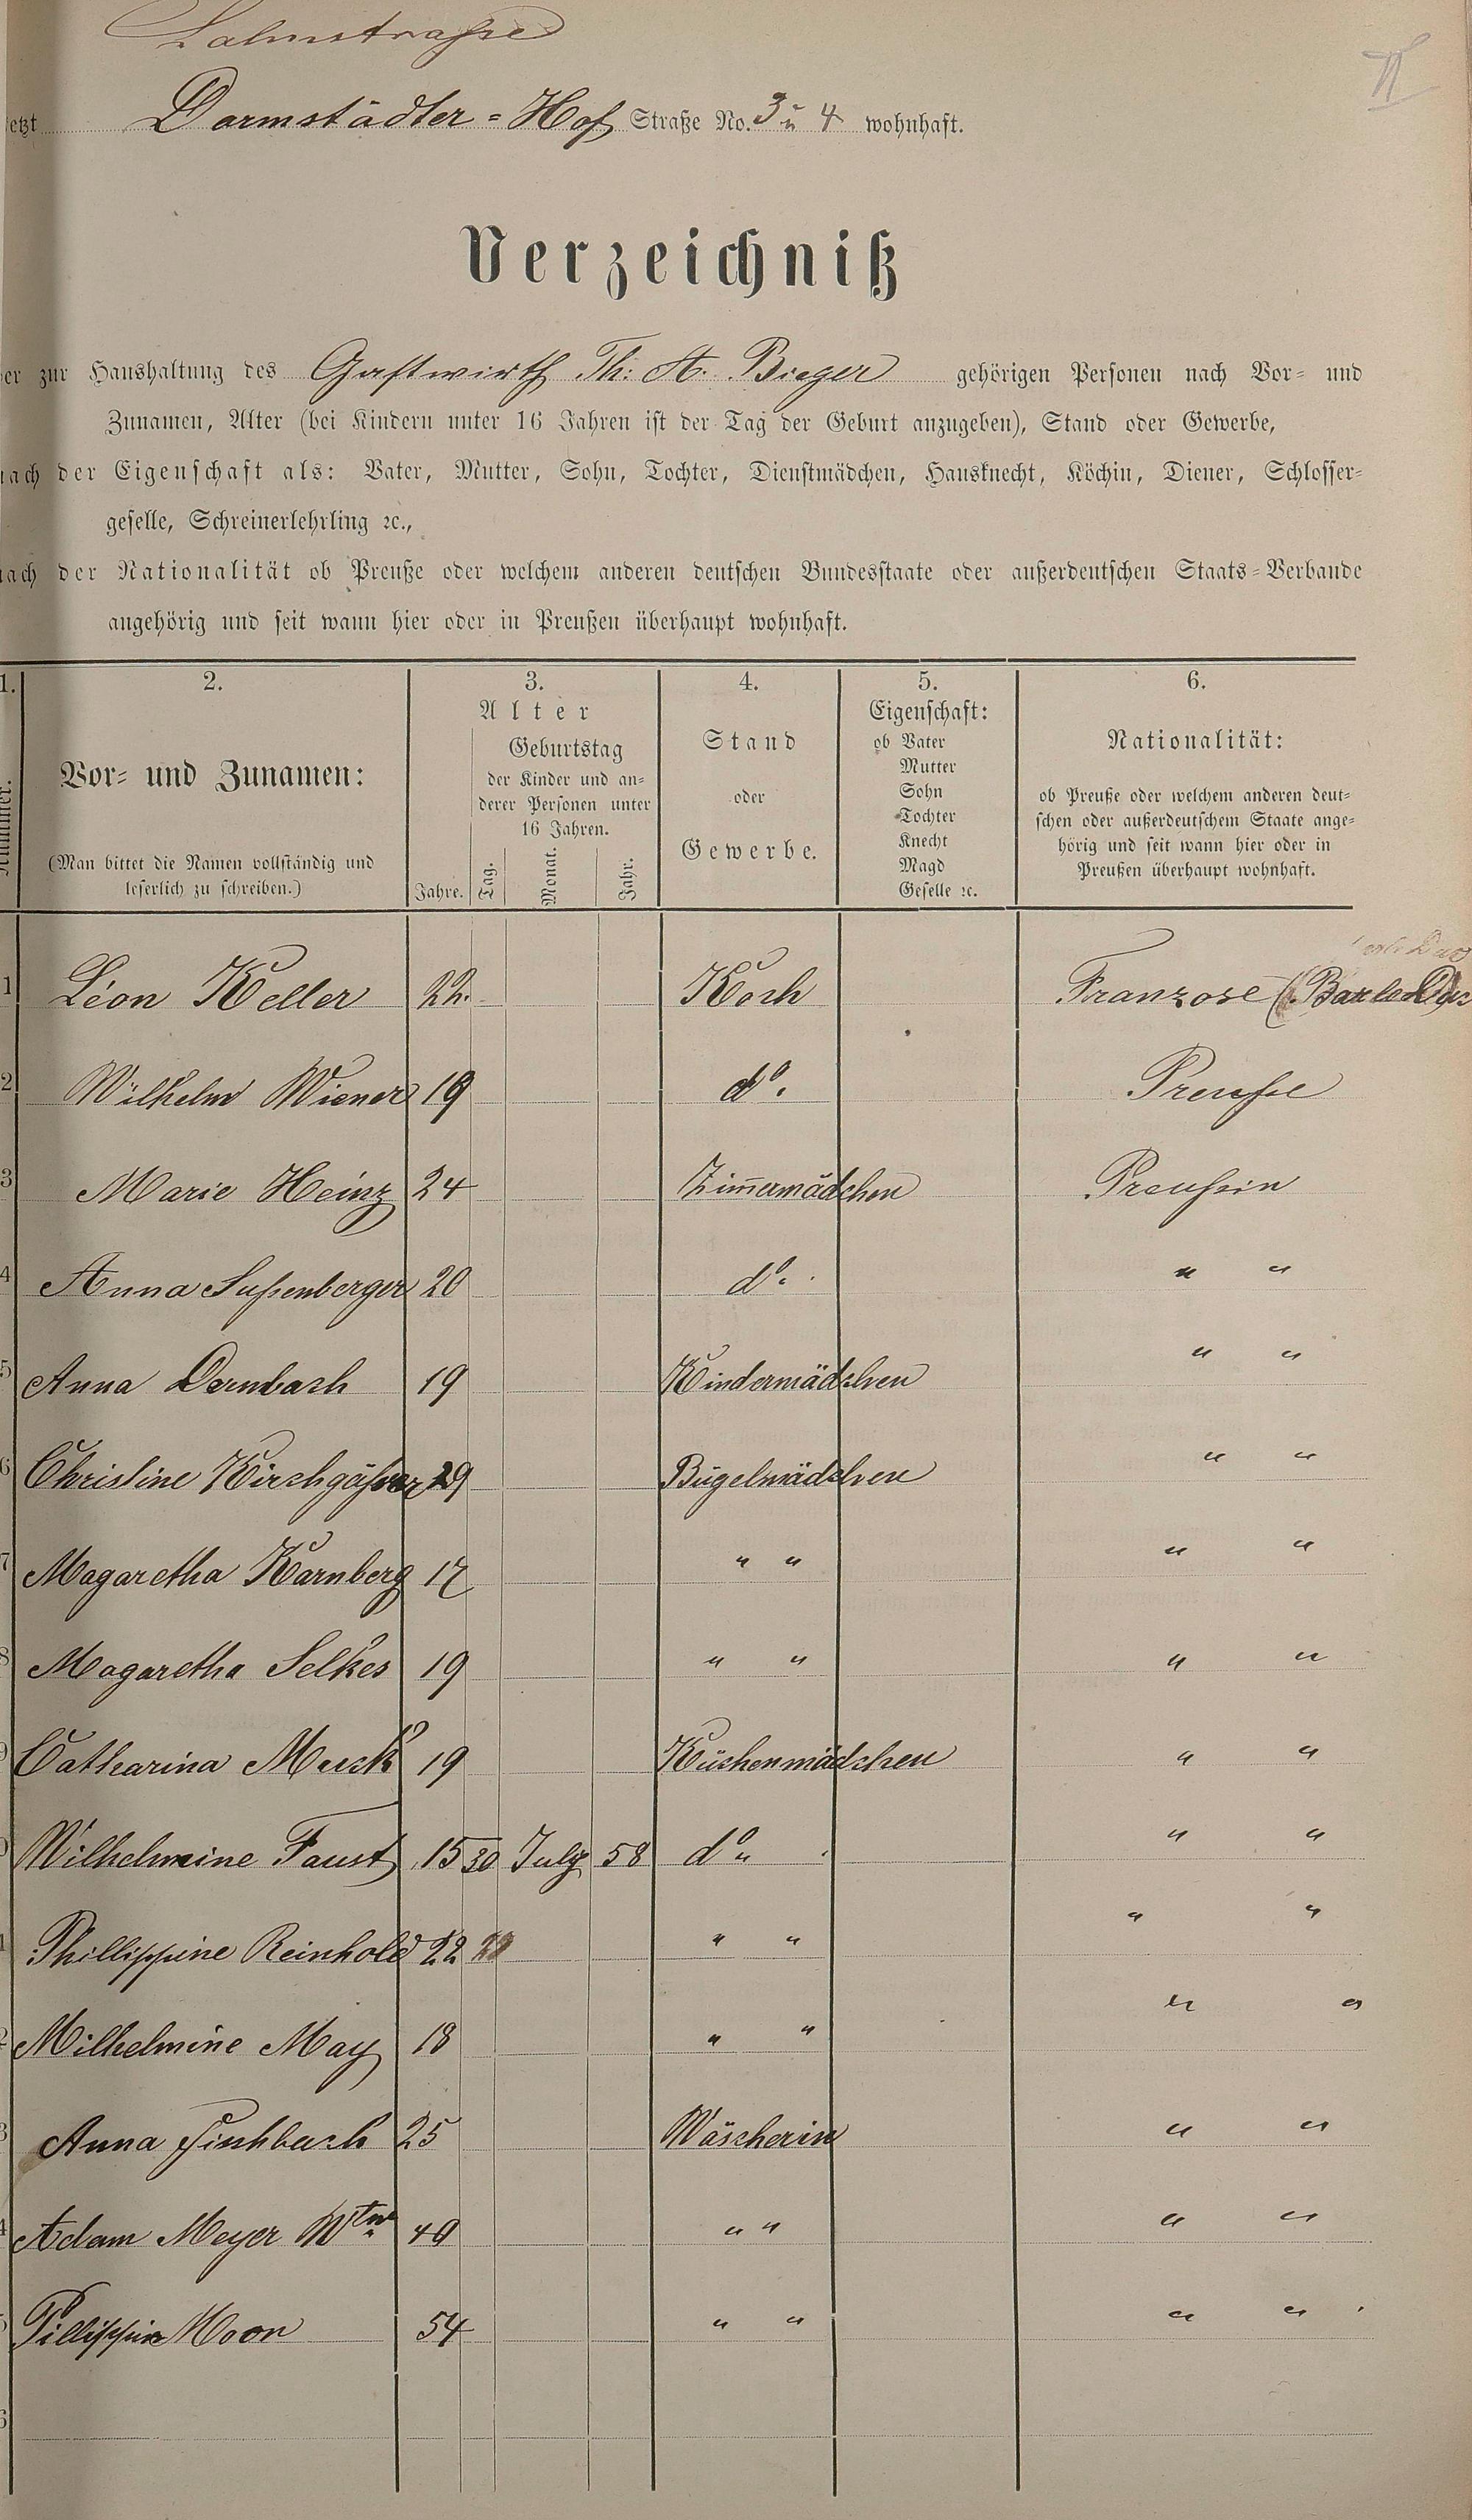 Lahnstraße
II
etzt Darmstädter-Hof Straße No. 3 u 4 wohnhaft.
Verzeichniß
er zur Haushaltung des Gastwirth Th: A. Bieger gehörigen Personen nach Vor- und
Zunamen, Alter (bei Kindern unter 16 Jahren ist der Tag der Geburt anzugeben), Stand oder Gewerbe,
nach der Eigenschaft als: Vater, Mutter, Sohn, Tochter, Dienstmädchen, Hausknecht, Köchin, Diener, Schlosser-
geselle, Schreinerlehrling ꝛc.,
nach der Nationalität ob Preuße oder welchem anderen deutschen Bundesstaate oder außerdeutschen Staats-Verbande
angehörig und seit wann hier oder in Preußen überhaupt wohnhaft.
1. 2. 3. 4. 5. 6.
Nummer.
Vor- und Zunamen:
(Man bittet die Namen vollständig und
leserlich zu schreiben.)
Alter
Jahre.
Geburtstag
der Kinder und an-
derer Personen unter
16 Jahren.
Tag. Monat. Jahr.
Stand
oder
Gewerbe.
Eigenschaft:
ob Vater
Mutter
Sohn
Tochter
Knecht
Magd
Geselle ꝛc.
Nationalität:
ob Preuße oder welchem anderen deut-
schen oder außerdeutschem Staate ange-
hörig und seit wann hier oder in
Preußen überhaupt wohnhaft.
1 Léon Keller 22. Koch Franzose (Bar le Duc
2 Wilhelm Wiener 19 do. Preuße
3 Marie Heinz 24 Zim̄ermädchen Preußin
4 Anna Sußenberger 20 do. " "
5 Anna Dernbach 19 Kindermädchen " "
6 Christine Kirchgäßner 29 Bügelmädchen " "
7 Magaretha Karnberg 17 " " " "
8 Magaretha Selkes 19 " " " "
9 Catharina Musk 19 Küchenmädchen " "
Wilhelmine Faust 15 30 July 58 do " " "
1 Phillippine Reinhold 22 " " " "
2 Wilhelmine May 18 " " " "
3 Anna Fischbach 25 Wäscherin " "
4 Adam Meyer Wtw 40 " " " "
5 Pillippine Moor 54 " " " "
6